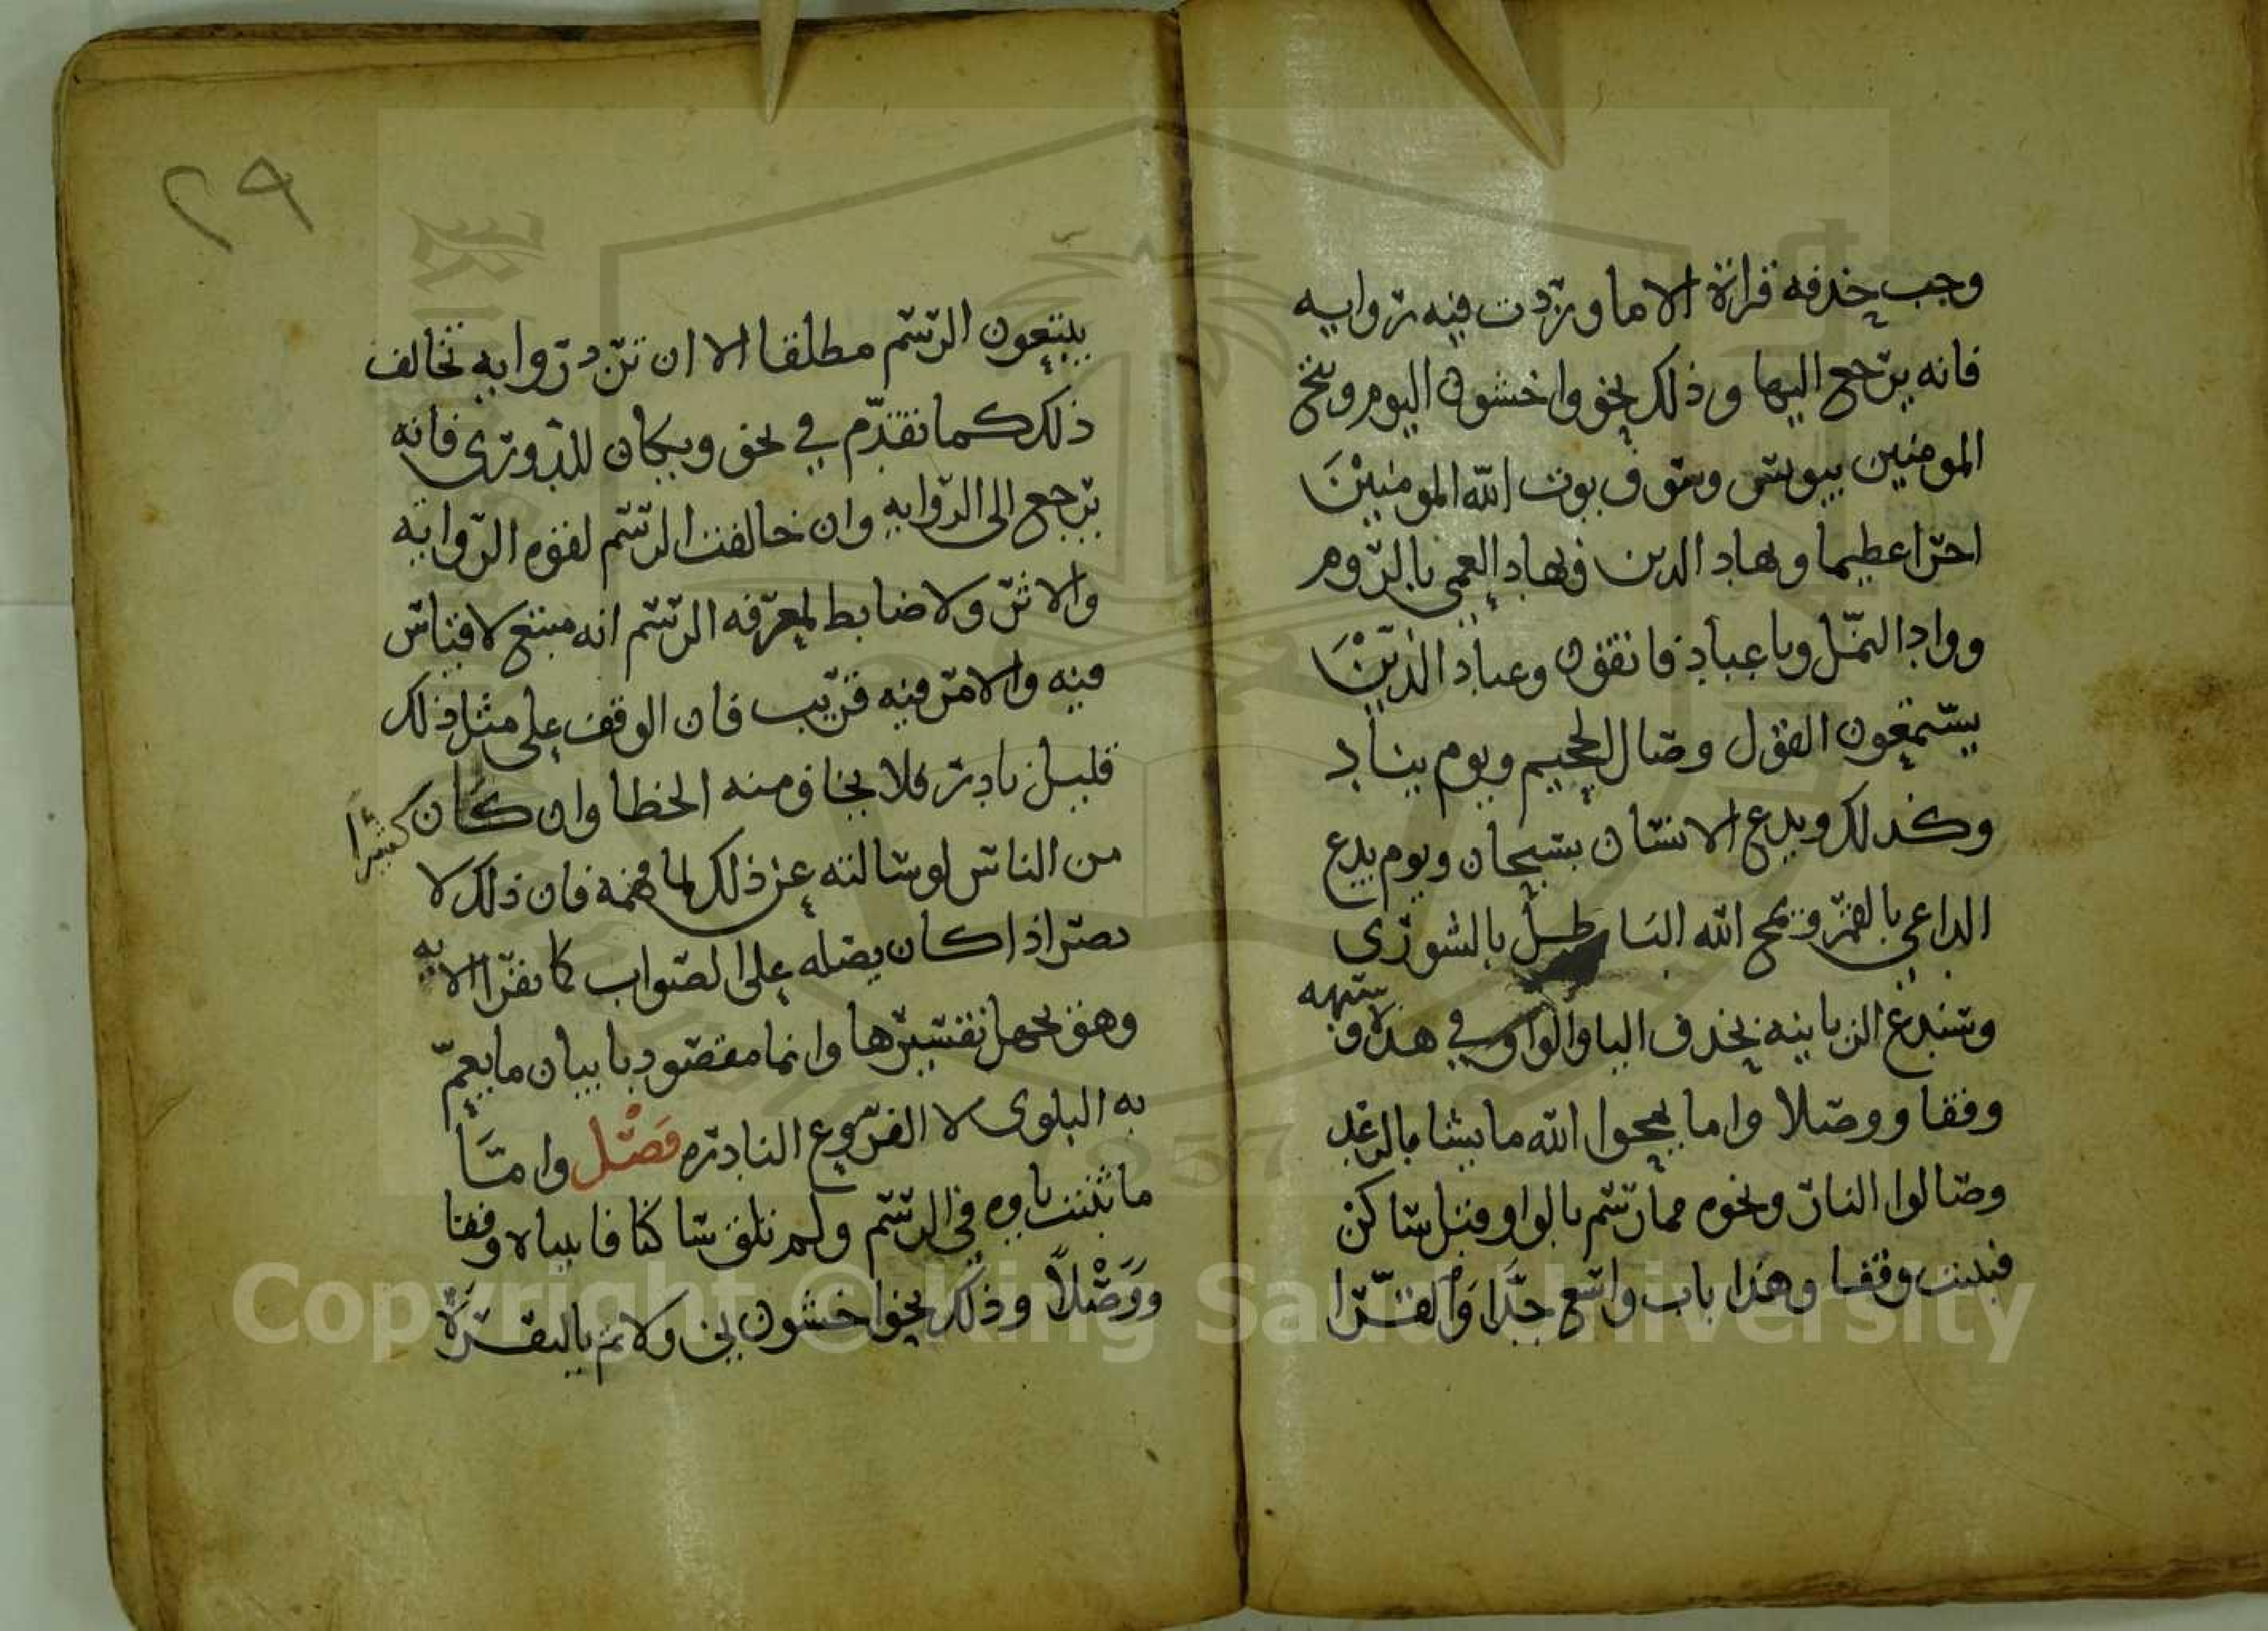 وجب حذفه قراة الا ما وردت فيه رواية
فانه يرجع اليها وذلك نحو واخشون اليوم وننج
المومنين بيونس وسوف يوت الله المومنين
اجرا عظيما وبهاد الدين وبهاد العمي بالروم
وواد النمل ويا عباد فاتقون وعباد الذين
يستمعون القول وصال الجحيم ويوم يناد
وكذلك ويدع الانسان بسبحان ويوم يدع
الداعي بالقمر ويمح الله الباطل بالشورى
وسندع الزبانيه بحذف اليا والواو في هذا وشبهه
وقفا ووصلا واما يمحوا الله ما يشا بالرعد
وصالوا النار ونحوه مما رسم بالواو قبل ساكن
فيثبت وقفا وهذا باب واسع جدا والقرا
٢٩
يتبعون الرسم مطلقا الا ان ترد روايه تخالف
ذلك كما تقدم في نحو ويكان للدوري فانه
يرجع الى الروايه وان خالفت الرسم لقوه الروايه
والاثر ولا ضابط لمعرفه الرسم انه متبع لا قياس
فيه والامر فيه قريب فان الوقف على مثل ذلك
قليل نادر فلا يخاف منه الخطا وان كان كثيرا
من الناس لو سالته عن ذلك لما فهمه فان ذلك لا
يضر اذا كان يصله على الصواب كما يقرا الايه
وهو يجهل تفسيرها وانما مقصودنا بيان ما يعم
به البلوى لا الفروع النادره فصل واما
ما ثبتت ياوه في الرسم ولم تلق ساكنا فا بياه وقفا
ووصلا وذلك نحو اخشوني ولاتم بالبقرة